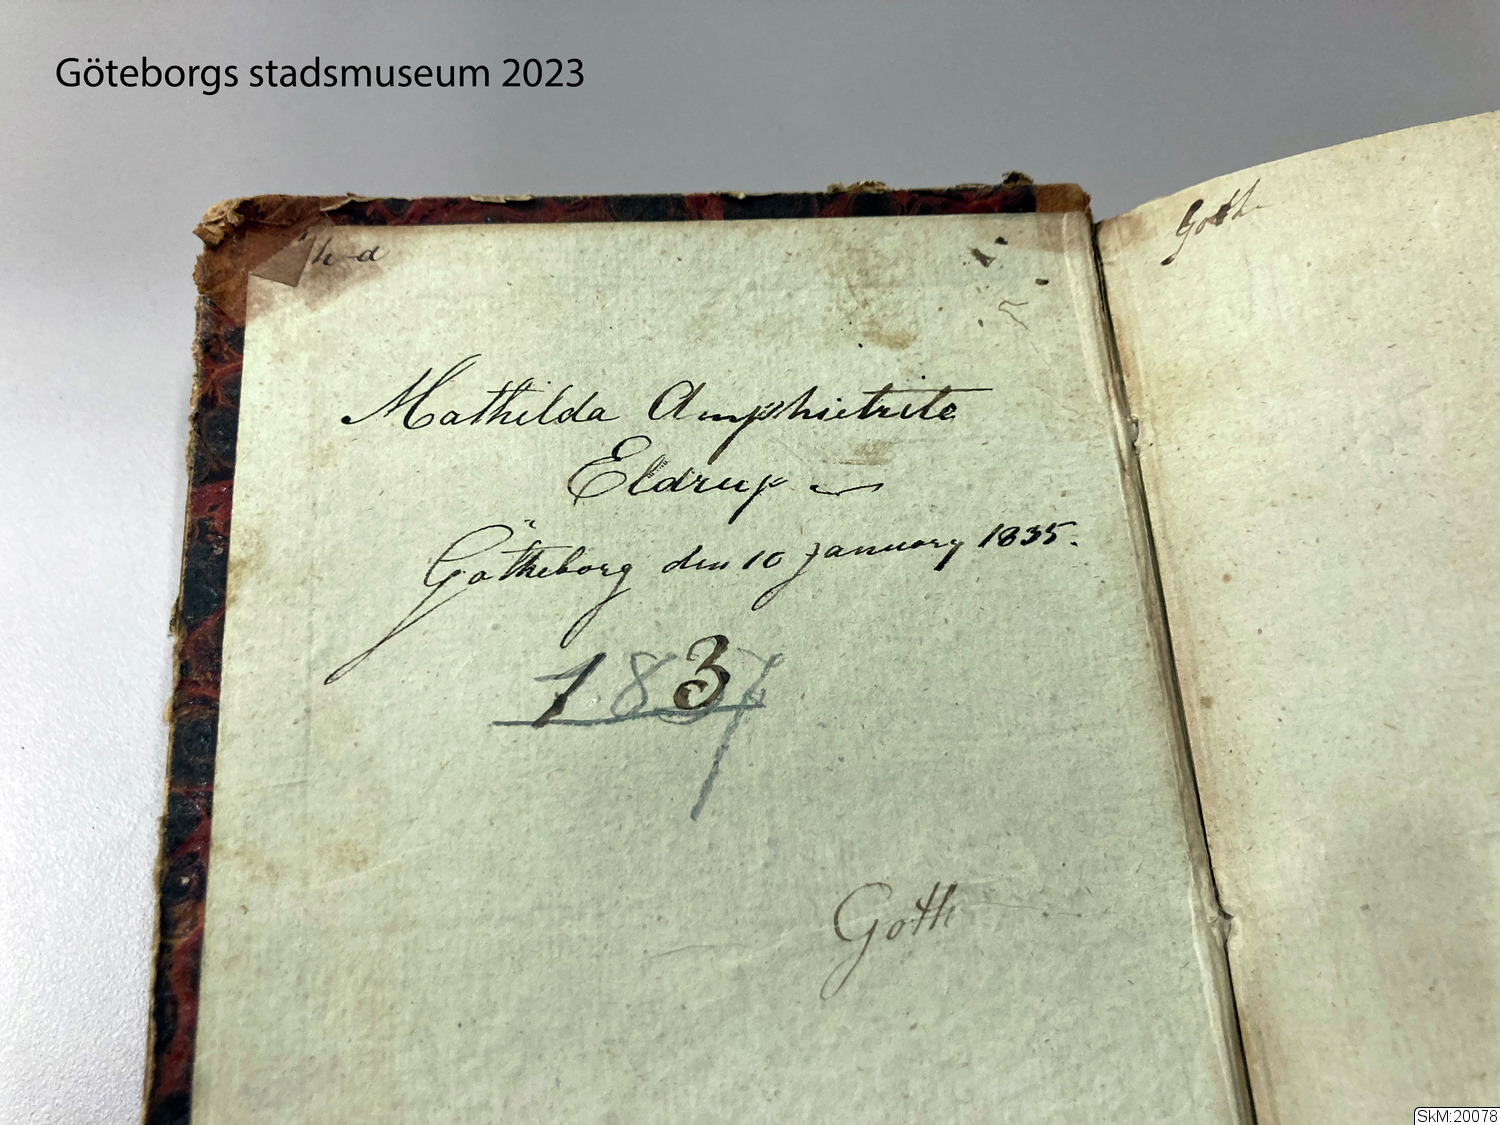 Göteborgs stadsmuseum 2023
Goth
Mathilda Amphietrite
Eldrup
Götheborg den 10 january 1835.
1837
Goth
SkM:20078